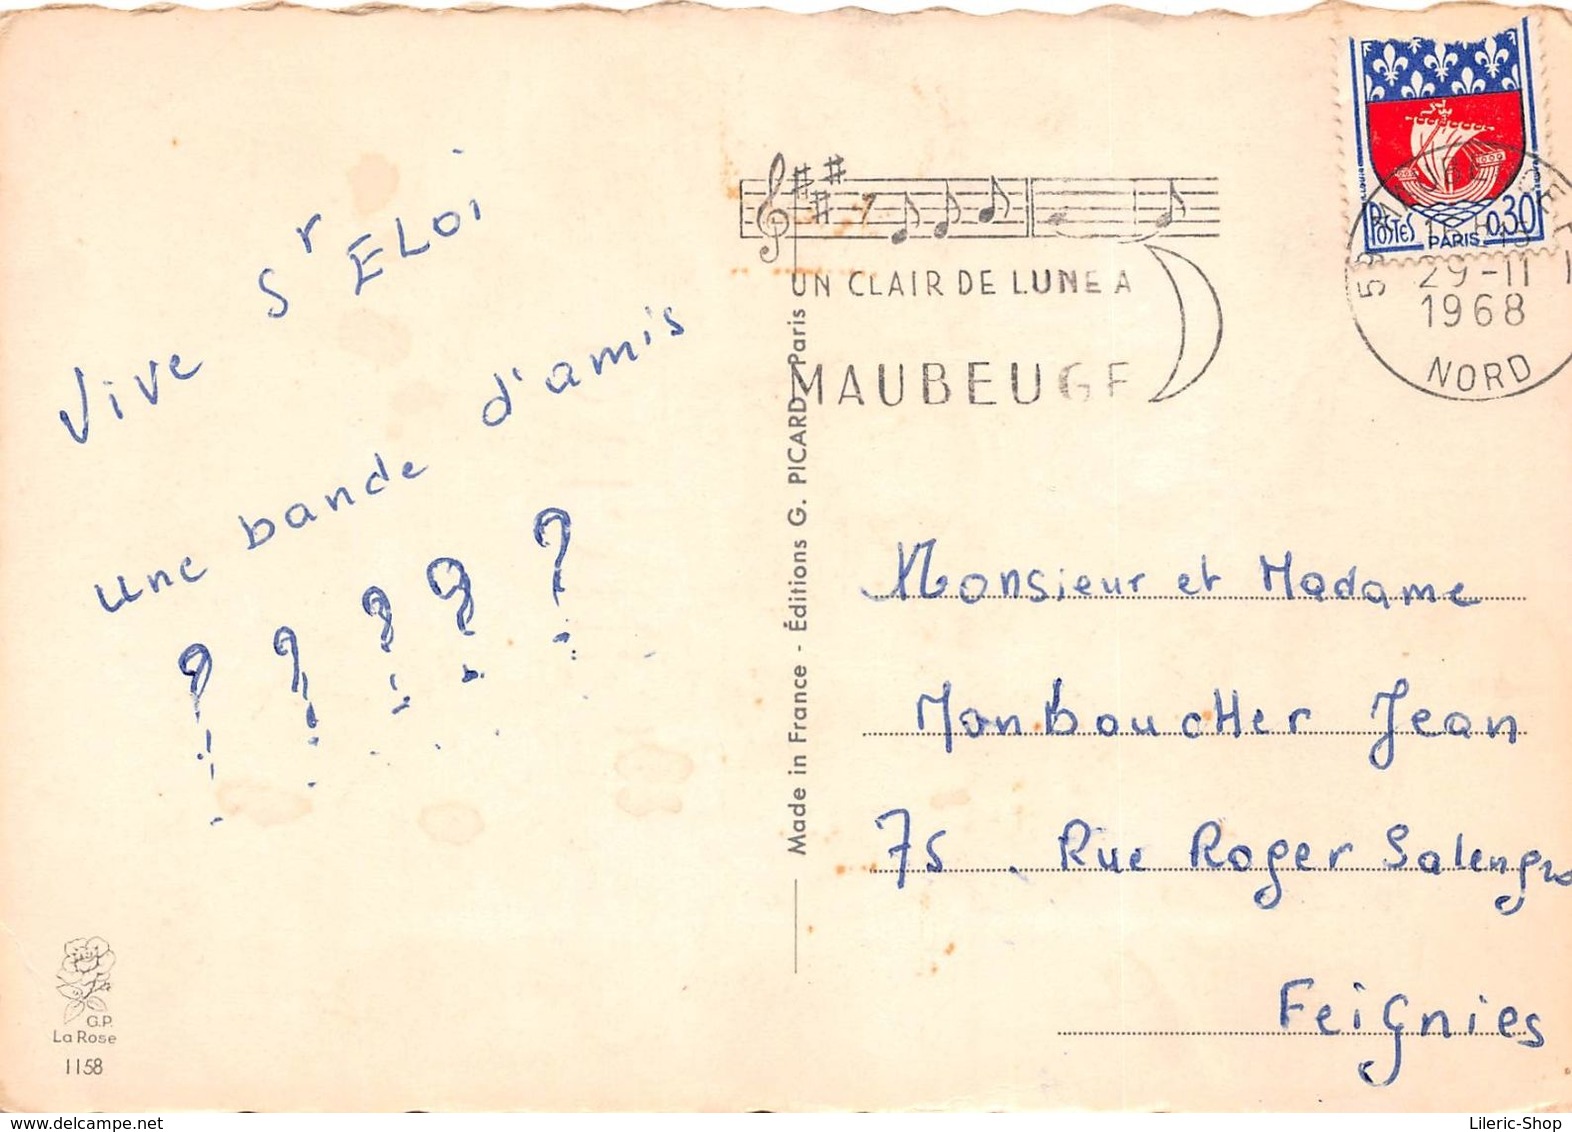 Vive Sr ELOi
une bande d'amis
? ? ? ? ?
G.P.
La Rose
1158
Made in France - Éditions G. PICARD, Paris
UN CLAIR DE LUNE A
MAUBEUGE
POSTES PARIS 0,30F
29-11
1968
NORD
Monsieur et Madame
MonboucHer Jean
75 . Rue Roger Salengro
FeiGnies
Lileric-Shop